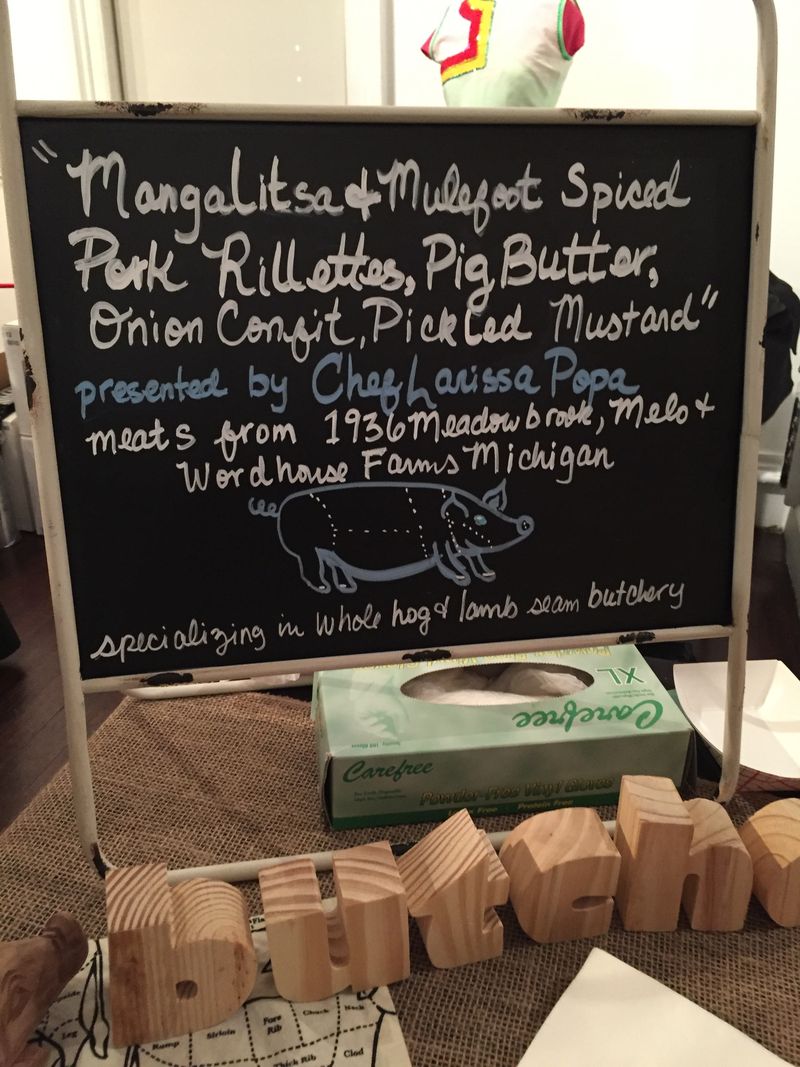 "Mangalitsa & Mulefoot Spiced
Pork Rillettes, Pig Butter,
Onion Confit, Pickled Mustard"
presented by Chef Larissa Popa
meats from 1936 Meadowbrook, Melo &
Wordhouse Farms Michigan
specializing in whole hog & lamb seam butchery
XL
Carefree
Carefree
Powder-Free Vinyl Gloves
Protein Free
butch
Leg
Rump
Sirloin
Fore
Rib
Chuck
Neck
Thick Rib
Clod